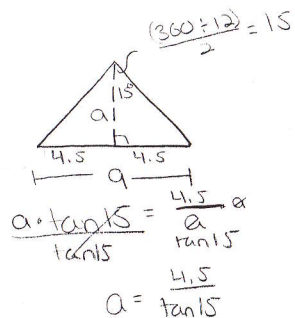 (360÷12)/2 = 15
15°
a
4.5 4.5
9
a·tan15/tan15 = 4.5/a·a/tan15
a = 4.5/tan15